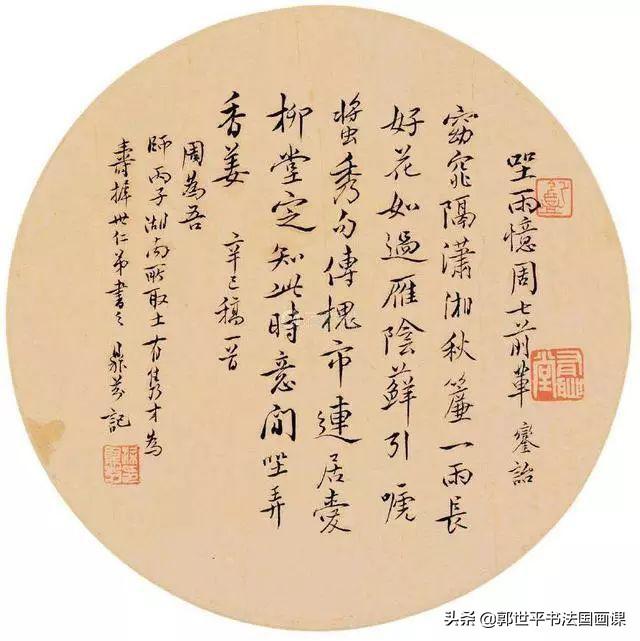 坐雨憶周七前輩 鑾詒
窈窕隔瀟湘秋簾一雨長
好花如過雁陰蘚引唬
螿秀句傳槐市連居愛
柳堂定知此時意閒坐弄
香姜 辛巳稿一首
周爲吾
師丙子湖南所取士有雋才爲
壽世仁弟書之 鼎芬記
头条 @郭世平书法国画课